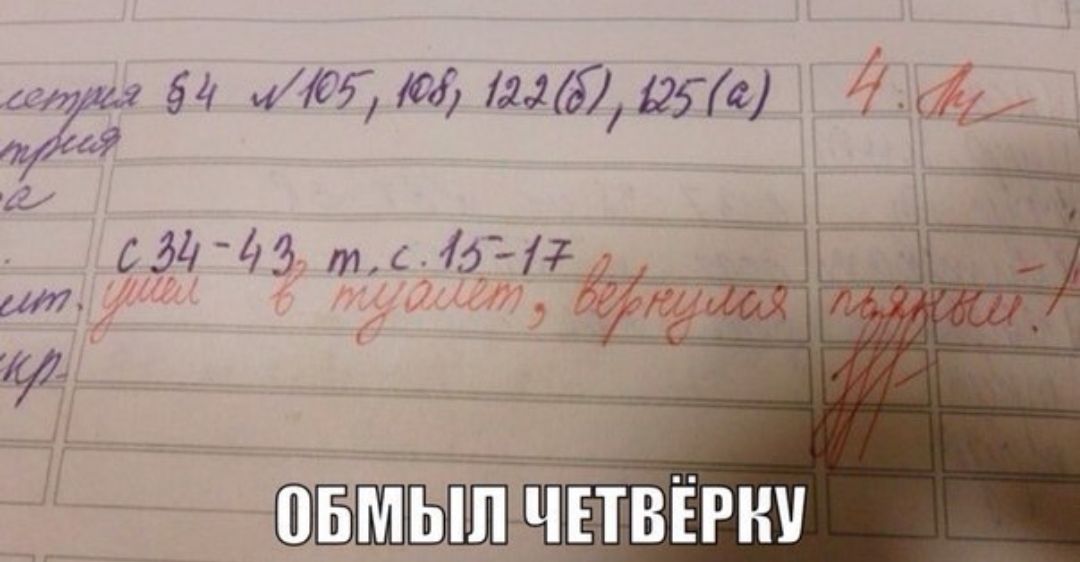 §4 №105, 108, 122(б), 125(а) 4.
с 34-43, т. с. 15-17
ушел в туалет, вернулся пьяный!
ОБМЫЛ ЧЕТВЁРКУ